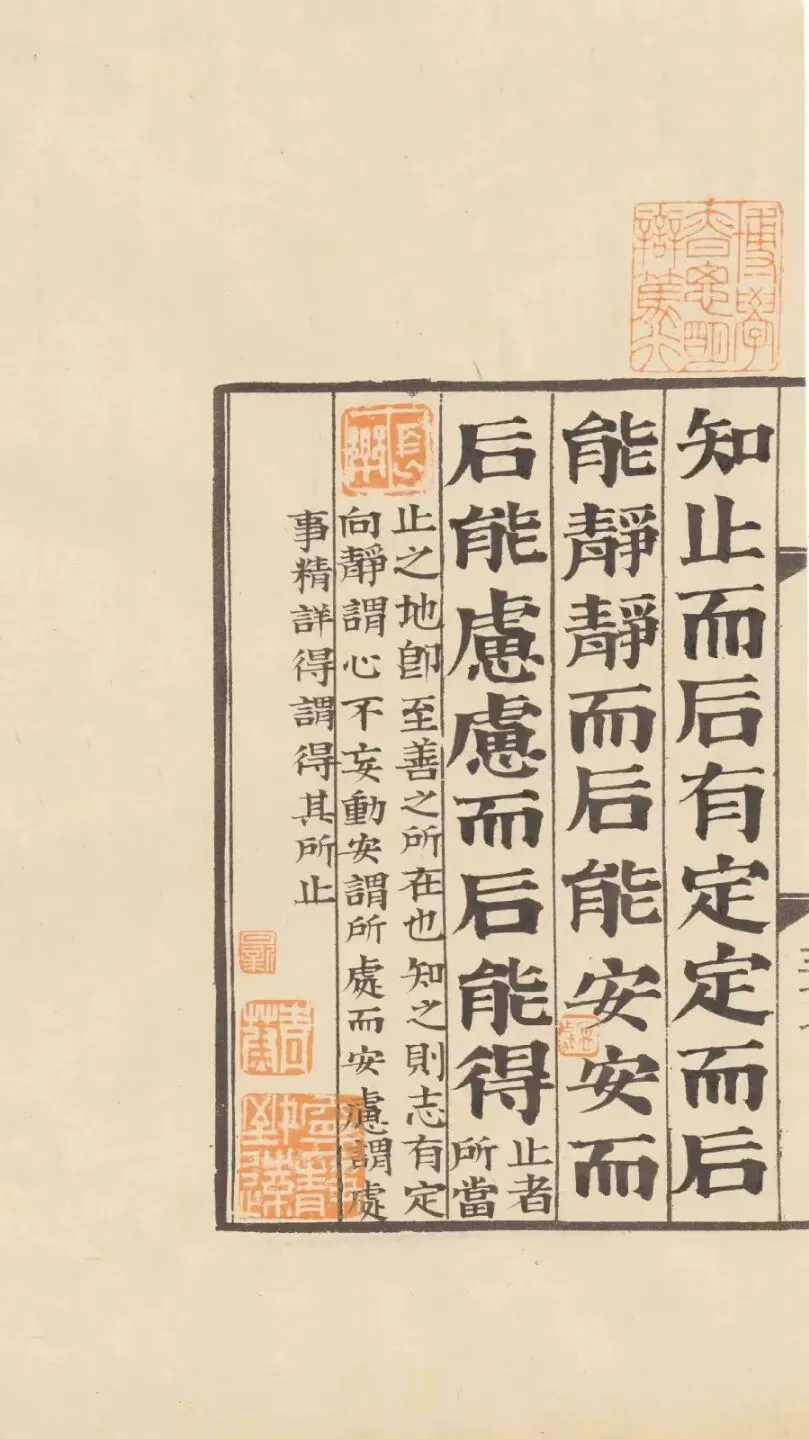 博學
昚思明
辯篤行
知止而后有定定而后
能靜靜而后能安安而
后能慮慮而后能得
止者
所當
止之地卽至善之所在也知之則志有定
向靜謂心不妄動安謂所處而安慮謂處
事精詳得謂得其所止